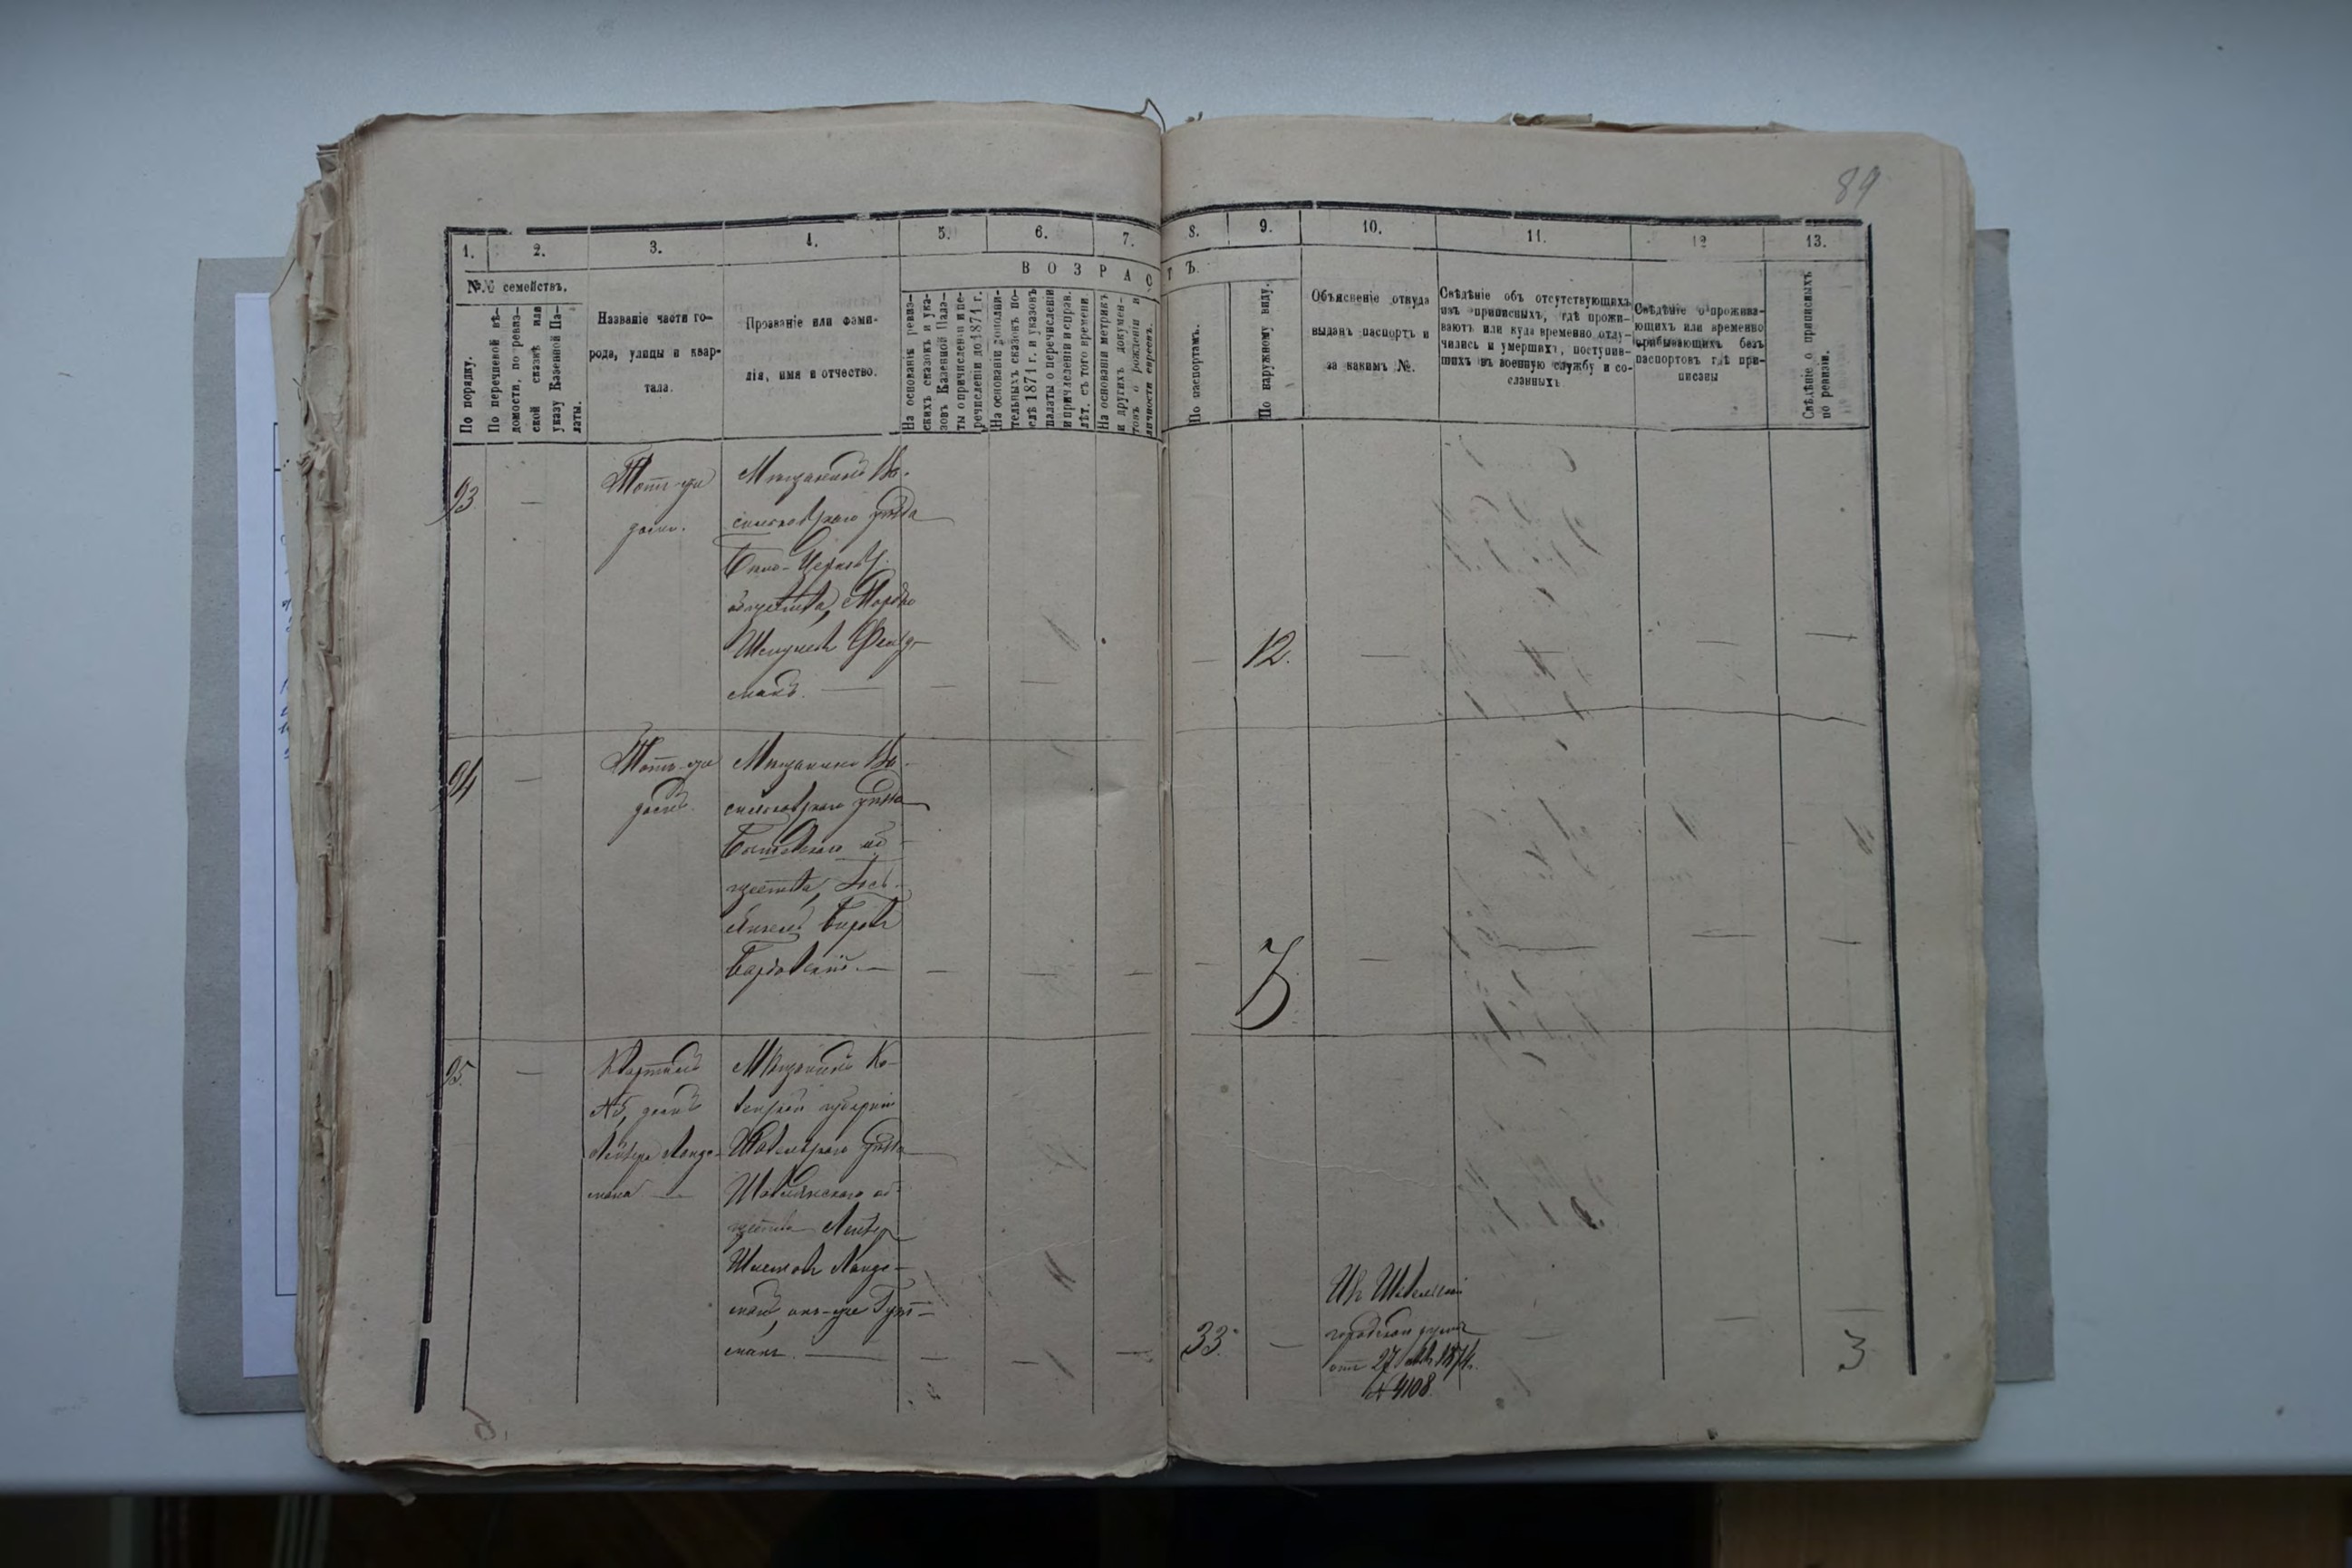 89
1. 2. 3. 4. 5. 6. 7. 8. 9. 10. 11. 12 13.
№№ семействъ.
В О З Р А С Т Ъ.
По порядку.
По перечневой вѣ-
домости, по ревиз-
ской сказкѣ или
указу Казенной Па-
латы.
Названіе части го-
рода, улицы и квар-
тала.
Прозваніе или фами-
лія, имя и отчество.
На основаніи ревиз-
скихъ сказокъ и ука-
зовъ Казенной Пала-
ты о причисленіи и пе-
речисленіи до 1871 г.
На основаніи дополни-
тельныхъ сказокъ по-
слѣ 1871 г. и указовъ
палаты о перечисленіи
и причисленіи и справ.
лѣт. съ того времени.
На основаніи метрикъ
и другихъ докумен-
товъ о рожденіи и
личности евреевъ.
По паспортамъ.
По наружному виду.
Объясненіе откуда
выданъ паспортъ и
за какимъ №.
Свѣдѣніе объ отсутствующихъ
изъ приписныхъ, гдѣ прожи-
ваютъ или куда временно отлу-
чились и умершихъ, поступив-
шихъ въ военную службу и со-
сланныхъ.
Свѣдѣніе о прожива-
ющихъ или временно
прибывающихъ безъ
паспортовъ гдѣ при-
писаны
Свѣдѣніе о приписныхъ
по ревизіи.
93
—
Тотъ-же
домъ.
Мѣщанинъ Ва-
сильковскаго уѣзда
Бѣло-Церков.
общества, Мордко
—
—
—
12.
—
—
—
94
—
Тотъ-же
домъ.
Мѣщанинъ Ва-
сильковскаго уѣзда
об-
щества,
—
—
—
—
3
—
—
—
—
95.
—
Кварталъ
домъ
Лейбера Ланде-
мана —
Мѣщанинъ Ко-
венской губерніи
Шавельскаго уѣзда
Шавлянскаго об-
щества Лейбер
Ланде-
манъ, онъ-же Гут-
манъ. —
—
—
—
33.
—
Из Шавельской
городской думы
от 27 1874.
№ 4108.
—
—
3